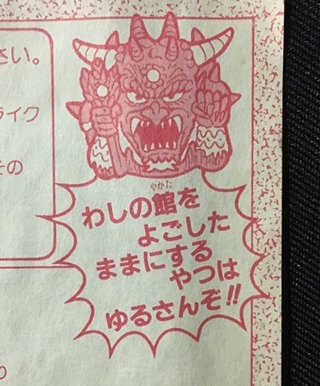 さい。
ライク
その
やかた
わしの館を
よごした
ままにする
やつは
ゆるさんぞ!!